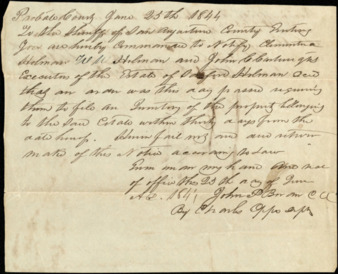 Probate Court June 25th 1844
To the Sheriff of San Augustine County Greeting
You are hereby Commanded to Notify
Holman W W Holman and John C
Executors of the Estate of Holman Decd
that an order was this day passed requiring
them to file an Inventory of the property belonging
to the said Estate within thirty days from the
date hereof. Herein fail not and due return
make of this Notice according to Law
Given under my hand and seal
of office this 25th day of June
AD. 1844 John P.
By Charles